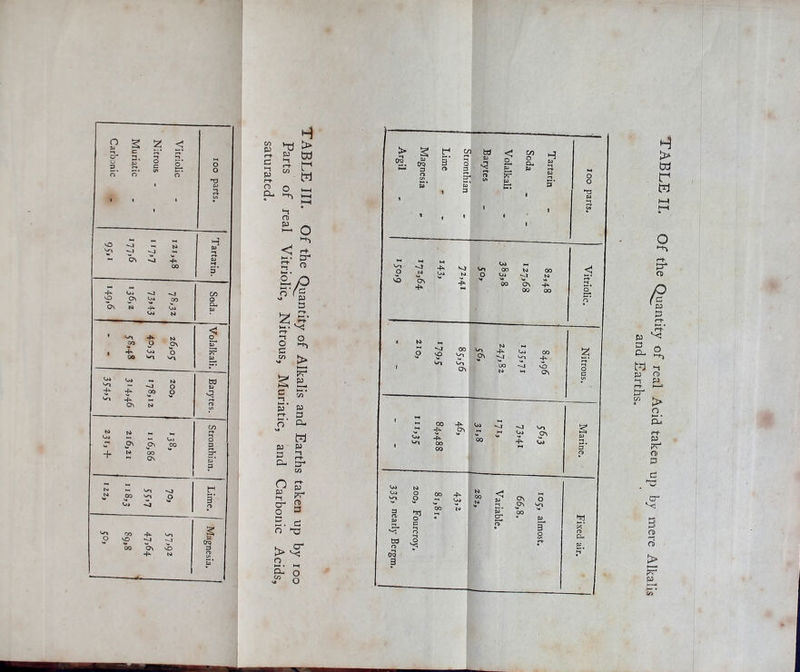 TABLE II. Of the Quantity of real Acid taken up by mere Alkalis
and Earths.
100 parts. Vitriolic. Nitrous. Marine. Fixed air.
Tartarin - 82,48 84,96 56,3 105, almost.
Soda - - 127,68 135,71 73,41 66,8.
Volalkali - 383,8 247,82 171, Variable.
Barytes - 50, 56, 31,8 282,
Stronthian - 72,41 85,56 46, 43,2
Lime - - 143, 179,5 84,488 81,81.
Magnesia - 172,64 210, 111,35 200, Fourcroy.
Argil - - 150,9 - - 335, nearly Bergm.
TABLE III. Of the Quantity of Alkalis and Earths taken up by 100
Parts of real Vitriolic, Nitrous, Muriatic, and Carbonic Acids,
saturated.
100 parts. Tartarin. Soda. Volalkali. Barytes. Stronthian. Lime. Magnesia.
Vitriolic - 121,48 78,32 26,05 200, 138, 70, 57,92
Nitrous - 117,7 73,43 40,35 178,12 116,86 55,7 47,64
Muriatic - 177,6 136,2 58,48 314,46 216,21 118,3 89,8
Carbonic - 95,1 149,6 - - 354,5 231, + 122, 50,